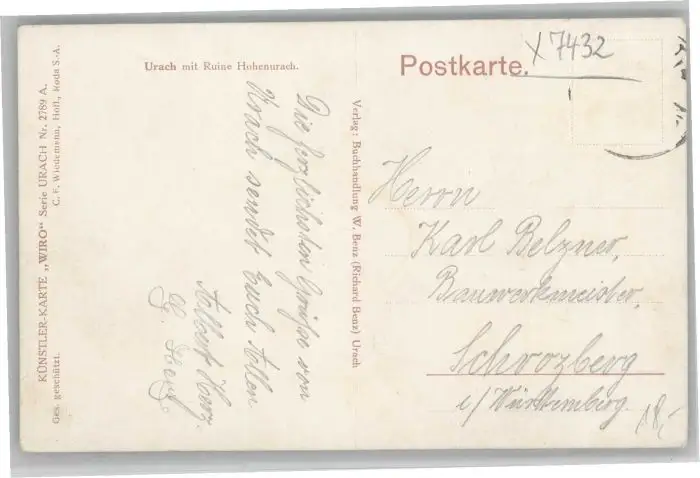 Urach mit Ruine Hohenurach.
Postkarte.
X 7432
KÜNSTLER-KARTE „WIRO“ Serie URACH Nr. 2789 A.
Ges. geschützt.
C. F. Wiedemann, Hofl., Roda S.-A.
Verlag: Buchhandlung W. Benz (Richard Benz) Urach
Die herzlichsten Grüße von
Urach sendet Euch Allen
Albert Herz.
Herrn
Karl Belzner,
Bauwerkmeister,
Schrozberg
i/ Württemberg.
18,-